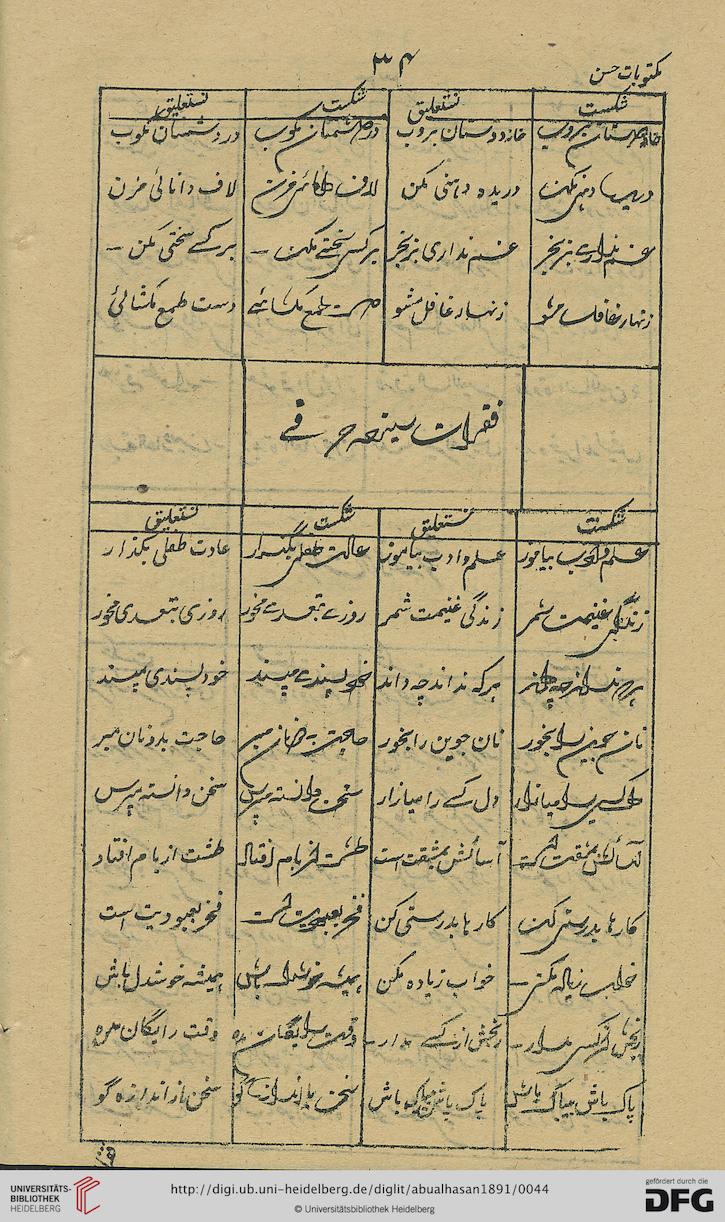 ۳۴
مکتوبات حسن
شکست نستعلیق شکست نستعلیق
خانه دوستان بروب خانه دوستان بروب در دشمنان مکوب در دشمنان مکوب
دریده دہنی مکن دریده دہنی مکن لاف دانائی مزن لاف دانائی مزن
غم نداری بز بخر غم نداری بز بخر برکسی سختی مکن – برکسے سختی مکن –
زنہار غافل مشو زنہار غافل مشو دست طمع مکشائے دست طمع مکشائی
فقرات سیزده حرفے
شکست نستعلیق شکست نستعلیق
علم و ادب بیاموز علم و ادب بیاموز عادت طفلی بگذار عادت طفلی بگذار
زندگی غنیمت شمر زندگی غنیمت شمر روزے بتعدے مخور روزی بتعدی مخور
ہرکه نداند چه داند ہرکه نداند چه داند خود پسندے مپسند خود پسندی مپسند
نان جوین را بخور نان جوین را بخور حاجت بدونان مبر حاجت بدونان مبر
دل کسی را میازار دل کسے را میازار سخن دانسته بپرس سخن دانسته بپرس
آسائش بمشقت است آسائش بمشقت است طشت از بام افتاد طشت از بام افتاد
کارہا بدرستی کن کارہا بدرستی کن فخر بعبودیت است فخر بعبودیت است
خواب زیاده مکن – خواب زیاده مکن ہمیشه خوشدل باش ہمیشه خوشدل باش
رنجش از کسی مدار – رنجش از کسے مدار – وقت رایگان مده وقت رایگان مده
پاک باش بیباک باش پاک باش بیباک باش سخن باندازه گو سخن باندازه گو
UNIVERSITÄTS-
BIBLIOTHEK
HEIDELBERG
http://digi.ub.uni-heidelberg.de/diglit/abualhasan1891/0044
© Universitätsbibliothek Heidelberg
gefördert durch die
DFG